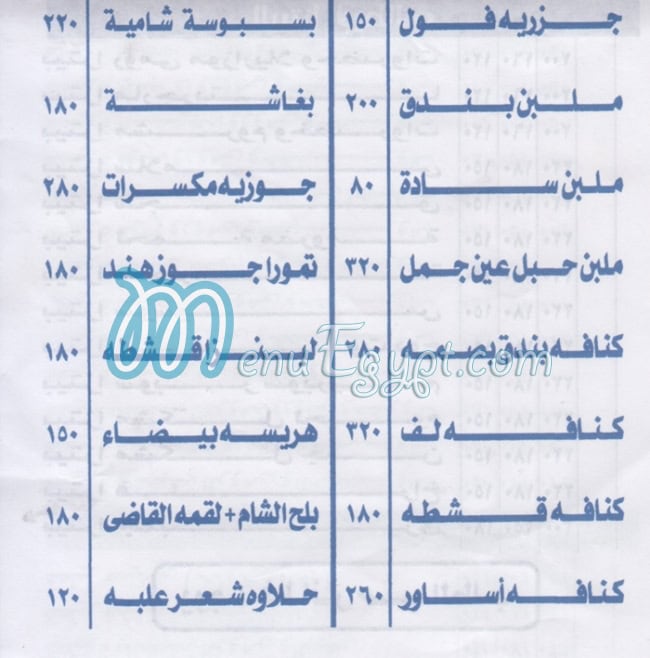 جزريه فول ١٥٠ بسبوسة شامية ٢٢٠
ملبن بندق ٢٠٠ بغاشة ١٨٠
ملبن سادة ٨٠ جوزيه مكسرات ٢٨٠
ملبن حبل عين جمل ٣٢٠ تمورا جوز هند ١٨٠
كنافه بندق ٢٨٠ قشطه ١٨٠
MenuEgypt.com
كنافه لف ٣٢٠ هريسه بيضاء ١٥٠
كنافه قشطه ١٨٠ بلح الشام + لقمه القاضى ١٨٠
كنافه أساور ٢٦٠ حلاوه شعر علبه ١٢٠